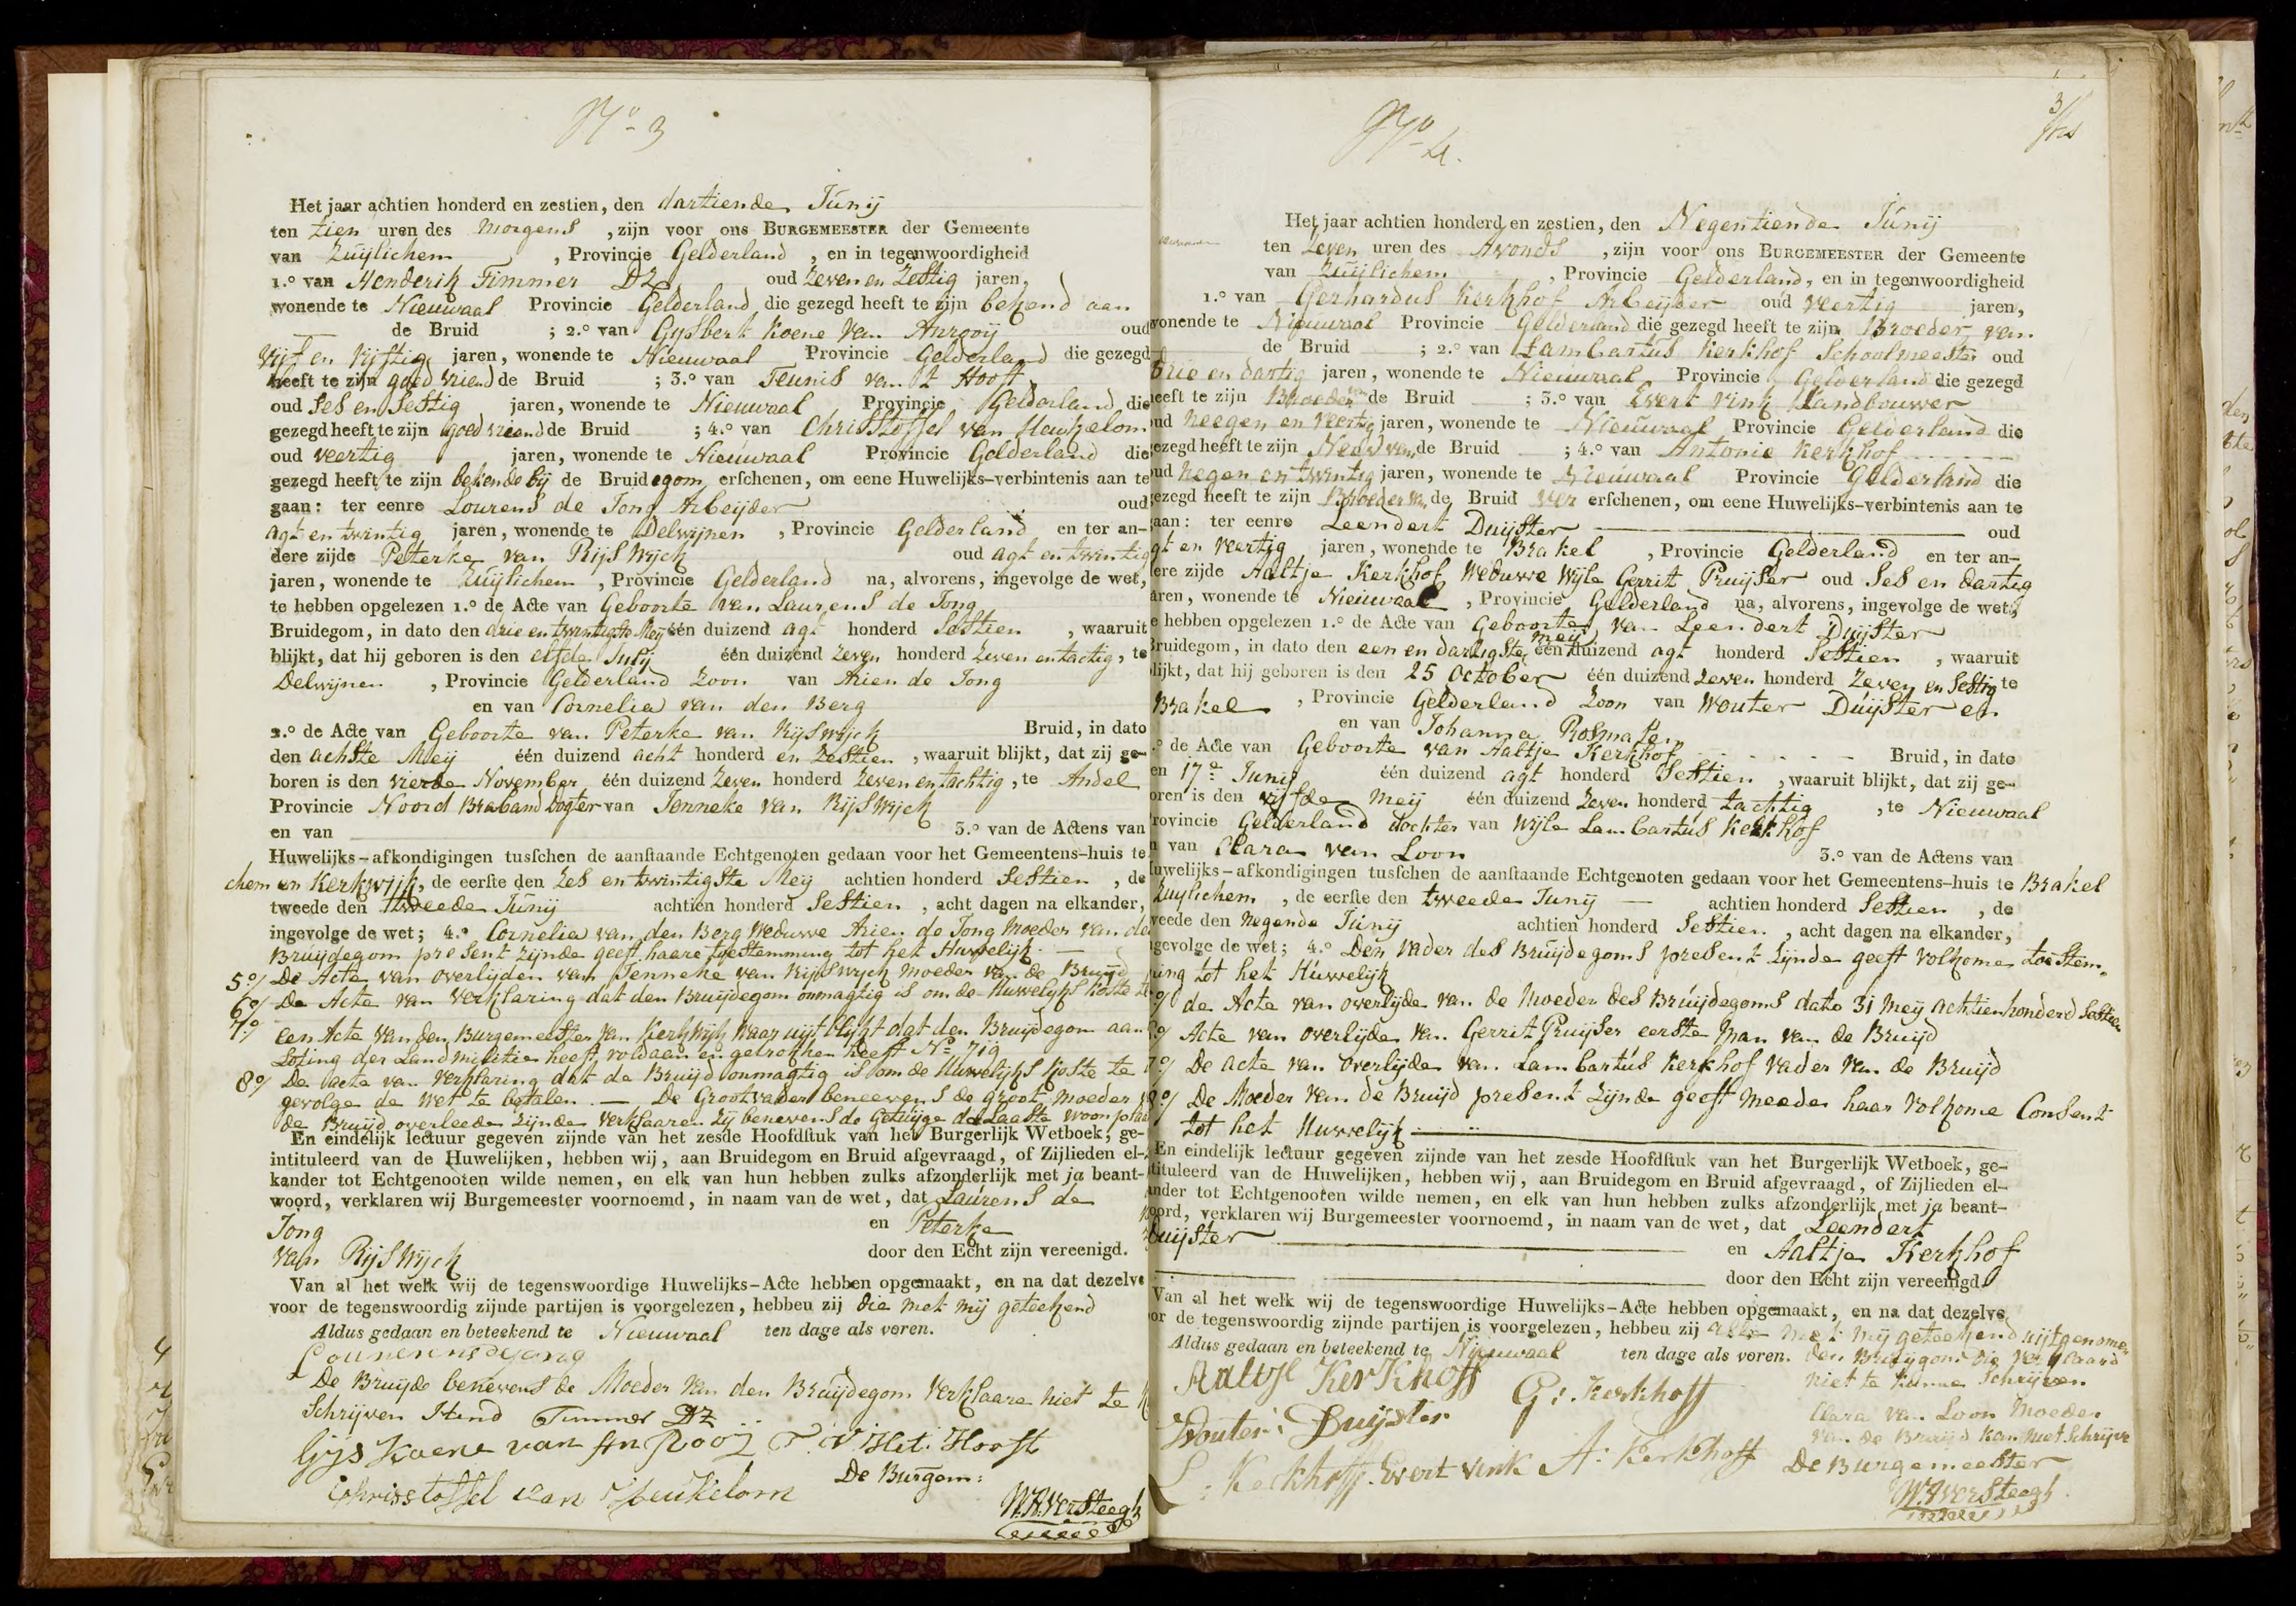 No 3
Het jaar achtien honderd en zestien, den dartiende Junij
ten tien uren des Morgens , zijn voor ons BURGEMEESTER der Gemeente
van Zuylichem , Provincie Gelderland , en in tegenwoordigheid
1.o van Henderik Timmer DZ oud Zeven en Zestig jaren,
wonende te Nieuwaal Provincie Gelderland die gezegd heeft te zijn bekend aan
de Bruid ; 2.o van Gijsbert Koene van Anrooij oud
Vijf en Vijftig jaren, wonende te Nieuwaal Provincie Gelderland die gezegd
heeft te zijn goed vriend de Bruid ; 3.o van Teunis van 't Hooft
oud Ses en Sestig jaren, wonende te Nieuwaal Provincie Gelderland die
gezegd heeft te zijn goed vriend de Bruid ; 4.o van Christoffel van Heukelom
oud veertig jaren, wonende te Nieuwaal Provincie Gelderland die
gezegd heeft te zijn bekende bij de Bruidegom, erschenen, om eene Huwelijks-verbintenis aan te
gaan: ter eenre Lourens de Jong Arbeijder oud
agt en twintig jaren, wonende te Delwijnen , Provincie Gelderland en ter an-
dere zijde Peterke van Rijswijck oud agt en twintig
jaren, wonende te Zuijlichem , Provincie Gelderland na, alvorens, ingevolge de wet,
te hebben opgelezen 1.o de Acte van Geboorte van Laurens de Jong
Bruidegom, in dato den drie en twintigste Meij één duizend agt honderd Sestien , waaruit
blijkt, dat hij geboren is den elfde Julij één duizend Zeven honderd Zeven en tactig, te
Delwijnen , Provincie Gelderland Zoon van Arien de Jong
en van Cornelia van den Berg
2.o de Acte van Geboorte van Peterke van Rijswijck Bruid, in dato
den achste Meij één duizend acht honderd en Zestien , waaruit blijkt, dat zij ge-
boren is den vierde November één duizend Zeven honderd Zeven en tachtig, te Andel
Provincie Noord Braband Dogter van Jenneke van Rijswijck
en van 3.o van de Actens van
Huwelijks-afkondigingen tusschen de aanstaande Echtgenoten gedaan voor het Gemeentens-huis te
chem en Kerkwijk, de eerste den Zes en twintigste Meij achtien honderd Sestien , de
tweede den tweede Junij achtien honderd Sestien , acht dagen na elkander,
ingevolge de wet; 4.o Cornelia van den Berg Weduwe Arien de Jong Moeder van de
Bruijdegom present zijnde geeft haare toestemming tot het Huwelijk
5o/ De Acte van overlijden van Jenneke van Rijswyck Moeder van de Bruijd
6o/ De Acte van Verklaring dat den Bruijdegom onmagtig is om de Huwelijks Koste te
7o/ een Acte van den Burgemeester van Kerkwijk waar uijt blijkt dat den Bruijdegom aan
Loting der Landmilitie heeft voldaan en getrokken heeft No 719
8o/ De acte van Verklaring dat de Bruijd onmagtig is om de Huwelijks Koste te
gevolge de Wet te betalen. — De Grootvader beneevens de groot moeder
de Bruijd overleeden zijnde Verklaaren zij benevens de Getuijge de Laaste woonplaa
En eindelijk lectuur gegeven zijnde van het zesde Hoofdstuk van het Burgerlijk Wetboek, ge-
intituleerd van de Huwelijken, hebben wij, aan Bruidegom en Bruid afgevraagd, of Zijlieden el-
kander tot Echtgenooten wilde nemen, en elk van hun hebben zulks afzonderlijk met ja beant-
woord, verklaren wij Burgemeester voornoemd, in naam van de wet, dat Laurens de
Jong en Peterke
van Rijswijck door den Echt zijn vereenigd.
Van al het welk wij de tegenswoordige Huwelijks-Acte hebben opgemaakt, en na dat dezelve
voor de tegenswoordig zijnde partijen is voorgelezen, hebben zij die met mij geteekend
Aldus gedaan en beteekend te Nieuwaal ten dage als voren.
De Bruijd benevens de Moeder van den Bruijdegom verklaare niet te
Schrijven Hend Timmer DZ
Gijs Koene van An Rooij T. V. Het. Hooft
Christoffel van Heukelom De Burgem:
W.H. VerSteegh
3/
No 4.
Het jaar achtien honderd en zestien, den Negentiende Junij
ten Zeven uren des Avonds , zijn voor ons BURGEMEESTER der Gemeente
van Zuijlichem , Provincie Gelderland, en in tegenwoordigheid
1.o van Gerhardus Kerkhof Arbeijder oud veertig jaren,
wonende te Nieuwaal Provincie Gelderland die gezegd heeft te zijn Broeder van
de Bruid ; 2.o van Lambartus Kerkhof Schoolmeester oud
Drie en dartig jaren, wonende te Nieuwaal Provincie Gelderland die gezegd
heeft te zijn Broeder van de Bruid ; 3.o van Evert Vink Landbouwer
oud neegen en veertig jaren, wonende te Nieuwaal Provincie Gelderland die
gezegd heeft te zijn Neef van de Bruid ; 4.o van Antonie Kerkhof
oud negen en twintig jaren, wonende te Nieuwaal Provincie Gelderland die
gezegd heeft te zijn Broeder v. de Bruid ver erschenen, om eene Huwelijks-verbintenis aan te
gaan: ter eenre Leendert Duijster oud
agt en veertig jaren, wonende te Brakel , Provincie Gelderland en ter an-
dere zijde Aaltje Kerkhof Weduwe Wijle Gerrit Pruijser oud Ses en dartig
jaren, wonende te Nieuwaal , Provincie Gelderland na, alvorens, ingevolge de wet,
te hebben opgelezen 1.o de Acte van Geboorte van Leendert Duijster
Bruidegom, in dato den een en dartigste Meij één duizend agt honderd Sestien , waaruit
blijkt, dat hij geboren is den 25 October één duizend Zeven honderd Zeven en Sestig te
Brakel , Provincie Gelderland Zoon van Wouter Duijster en
en van Johanna Rosmalen
2.o de Acte van Geboorte van Aaltje Kerkhof Bruid, in dato
den 17e Junij één duizend agt honderd Sestien , waaruit blijkt, dat zij ge-
boren is den vijfde Meij één duizend Zeven honderd tachtig , te Nieuwaal
Provincie Gelderland dochter van Wijle Lambartus Kerkhof
en van Clara van Loon 3.o van de Actens van
Huwelijks-afkondigingen tusschen de aanstaande Echtgenoten gedaan voor het Gemeentens-huis te Brakel
Zuylichem , de eerste den tweede Junij achtien honderd Sestien , de
tweede den Negende Junij achtien honderd Sestien , acht dagen na elkander,
ingevolge de wet; 4.o Den Vader des Bruijdegoms present zijnde geeft Volkome toestem-
ming tot het Huwelijk
o/ de Acte van overlijde van de Moeder des Bruijdegoms dato 31 Meij achtienhonderd Sestien
o/ Acte van overlijde van Gerrit Pruijser eerste Man van de Bruijd
7o/ De acte van overlijde van Lambartus Kerkhof Vader van de Bruijd
8o/ De Moeder van de Bruijd present zijnde geeft meede haar Volkome Consent
tot het Huwelijk
En eindelijk lectuur gegeven zijnde van het zesde Hoofdstuk van het Burgerlijk Wetboek, ge-
intituleerd van de Huwelijken, hebben wij, aan Bruidegom en Bruid afgevraagd, of Zijlieden el-
kander tot Echtgenooten wilde nemen, en elk van hun hebben zulks afzonderlijk met ja beant-
woord, verklaren wij Burgemeester voornoemd, in naam van de wet, dat Leendert
Duijster en Aaltje Kerkhof
door den Echt zijn vereenigd.
Van al het welk wij de tegenswoordige Huwelijks-Acte hebben opgemaakt, en na dat dezelve
voor de tegenswoordig zijnde partijen is voorgelezen, hebben zij alle met mij geteekend uijtgenome
Aldus gedaan en beteekend te Nieuwaal ten dage als voren. den Bruijgom die verklaard
niet te kunne Schrijven
Aaltje KerKhoff G: Kerkhoff
Clara van Loon Moeder
van de Bruijd kan niet Schrijve
Wouter Duijster
L: Kerkhoff Evert Vink A: Kerkhoff De Burgemeester
W.H VerSteegh